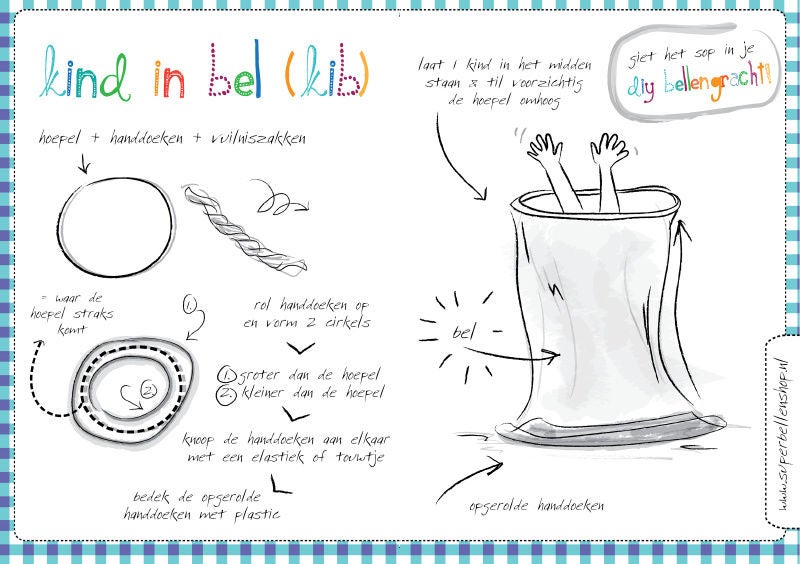 kind in bel (kib)
hoepel + handdoeken + vuilniszakken
= waar de
hoepel straks
komt
1.
2.
rol handdoeken op
en vorm 2 cirkels
1. groter dan de hoepel
2. kleiner dan de hoepel
knoop de handdoeken aan elkaar
met een elastiek of touwtje
bedek de opgerolde
handdoeken met plastic
laat 1 kind in het midden
staan & til voorzichtig
de hoepel omhoog
giet het sop in je
diy bellengracht!
bel
opgerolde handdoeken
www.superbellenshop.nl